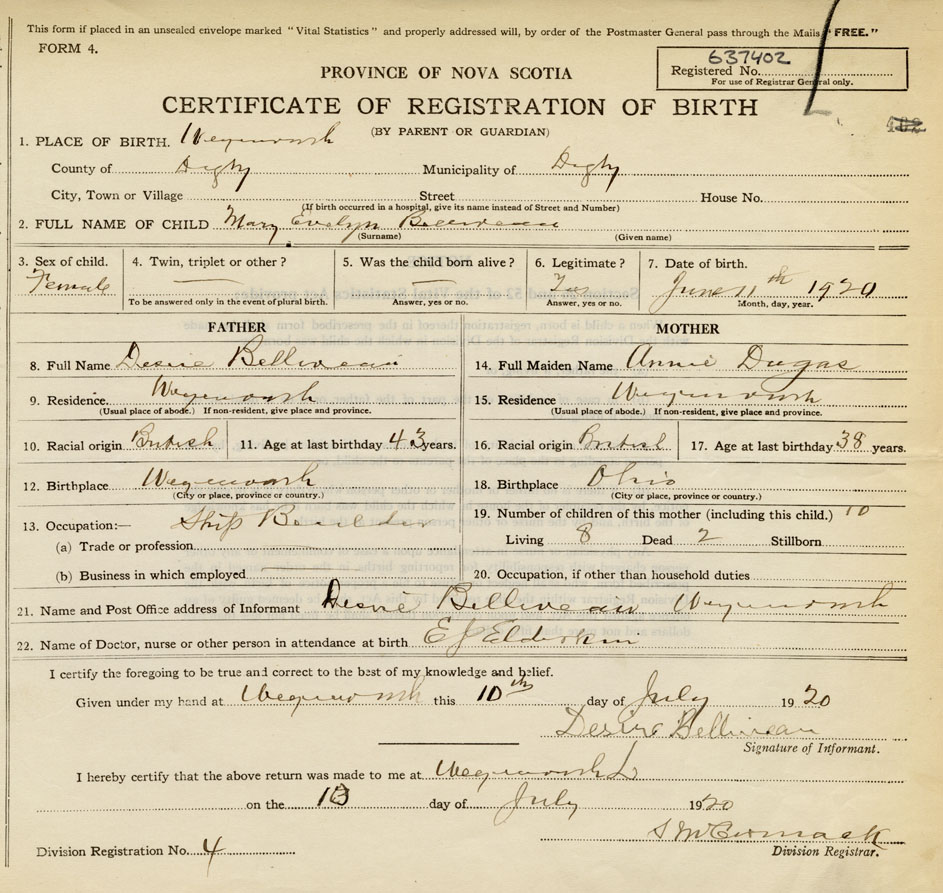 This form if placed in an unsealed envelope marked "Vital Statistics" and properly addressed will, by order of the Postmaster General pass through the Mails "FREE."
FORM 4.
637402
Registered No.
For use of Registrar General only.
PROVINCE OF NOVA SCOTIA
CERTIFICATE OF REGISTRATION OF BIRTH
(BY PARENT OR GUARDIAN)
1. PLACE OF BIRTH. Weymouth
County of Digby Municipality of Digby
City, Town or Village Street House No.
(If birth occurred in a hospital, give its name instead of Street and Number)
2. FULL NAME OF CHILD Mary Evelyn Belliveau
(Surname) (Given name)
3. Sex of child. 4. Twin, triplet or other? 5. Was the child born alive? 6. Legitimate? 7. Date of birth.
Female Yes June 11th 1920
To be answered only in the event of plural birth. Answer, yes or no. Answer, yes or no. Month, day, year.
FATHER MOTHER
8. Full Name Desire Belliveau 14. Full Maiden Name Annie Dugas
9. Residence. Weymouth 15. Residence Weymouth
(Usual place of abode.) If non-resident, give place and province. (Usual place of abode.) If non-resident, give place and province.
10. Racial origin British 11. Age at last birthday 43 years. 16. Racial origin British 17. Age at last birthday 38 years.
12. Birthplace Weymouth 18. Birthplace Ohio
(City or place, province or country.) (City or place, province or country.)
13. Occupation:— Ship Builder 19. Number of children of this mother (including this child.) 10
(a) Trade or profession Living 8 Dead 2 Stillborn
(b) Business in which employed 20. Occupation, if other than household duties
21. Name and Post Office address of Informant Desire Belliveau Weymouth
22. Name of Doctor, nurse or other person in attendance at birth E J Elderkin
I certify the foregoing to be true and correct to the best of my knowledge and belief.
Given under my hand at Weymouth this 10th day of July 1920
Desire Belliveau
Signature of Informant.
I hereby certify that the above return was made to me at Weymouth
on the day of July 1920
S McCormack
Division Registration No. 4 Division Registrar.